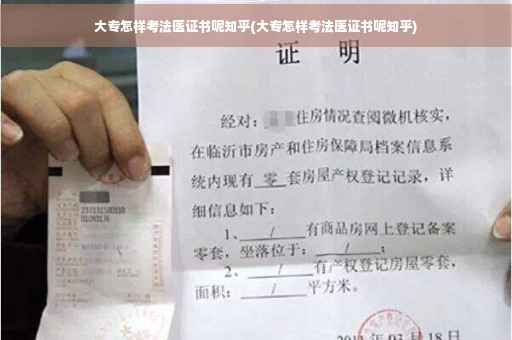 大专怎样考法医证书呢知乎(大专怎样考法医证书呢知乎)
证 明
经对: 住房情况查阅微机核实,
在临沂市房产和住房保障局档案信息系
统内现有 零 套房屋产权登记记录,详
细信息如下:
1、 / 有商品房网上登记备案
零套,坐落位于: / ;
2、 / 有产权登记房屋零套,
面积: / 平方米。
03 月 18 日